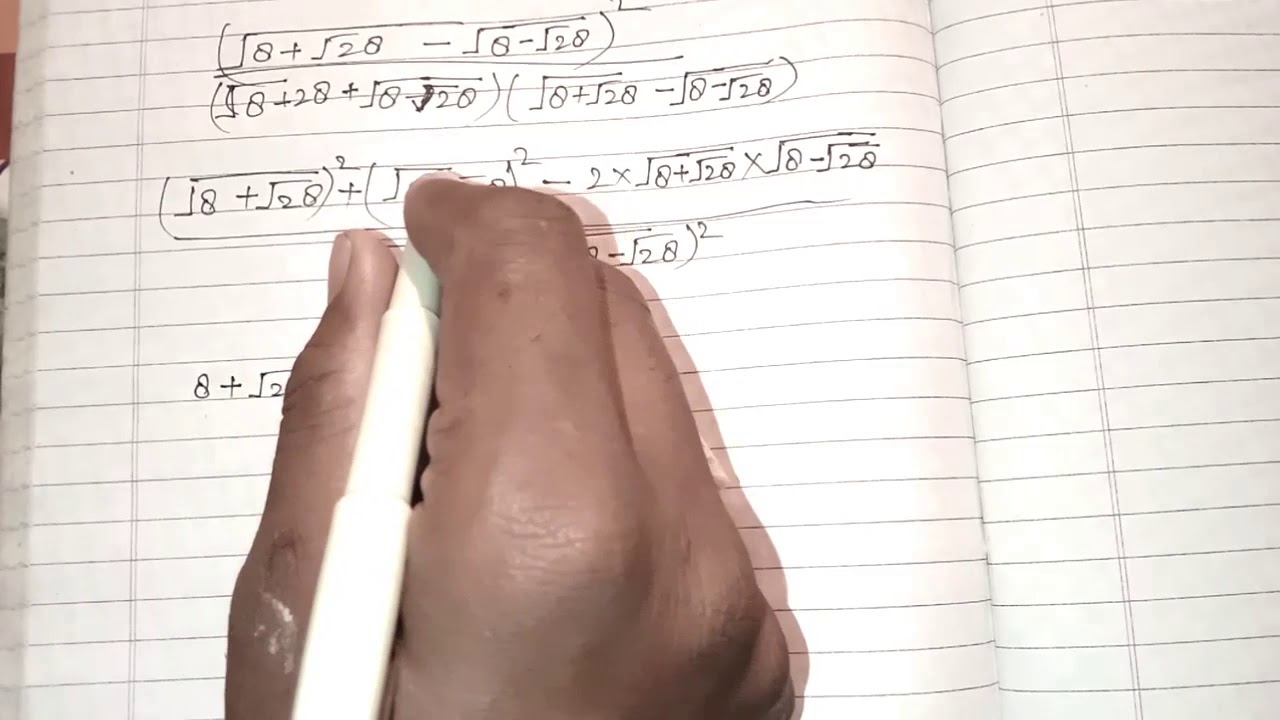 (√8+√28 - √8-√28)²
(√8+28+√8-√28)(√8+√28 -√8-√28)
(√8+√28)²+(√ 8)² - 2×√8+√28×√8-√28
-√28)²
8+√2